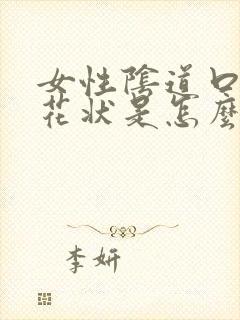 女性陰道口
花状是怎麼
李妍